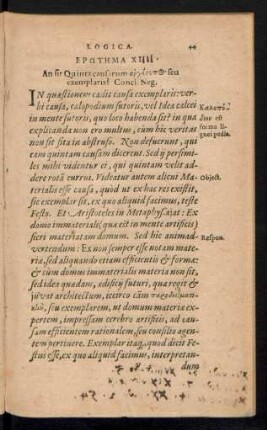 LOGICA. 44
ΕΡΩΤΗΜΑ XIIII.
An sit Quinta causarum seu
exemplaris? Concl. Neg.
IN quæstionem cadit causa exemplaris: ver-
bi causa, calopodium sutoris, vel Idea calcei
in mente sutoris, quo loco habenda sit? in qua
explicanda non ero multus, cùm hic veritas
non sit sita in abstruso. Non defuerunt, qui
eam quintam causam dicerent. Sed ij persimi-
les mihi videntur ei, qui quintam velit ad-
dere rotā currui. Videatur autem alicui Ma-
terialis esse causa, quòd ut ex hac res existit,
sic exemplar sit, ex quo aliquid facimus, teste
Festo. Et Aristoteles in Metaphys. ait: Ex
domo immateriali (quæ est in mente artificis)
fieri materiatam domum. Sed hic animad-
vertendum: Ex non semper esse notam mate-
ria, sed aliquando etiam efficientis & formæ:
& cùm domus immaterialis materia non sit,
sed idea quædam, ædificij futuri, qua regit &
juvat architectum, iccirco cùm
seu exemplarem, ut domum materia ex-
pertem, impressam cerebro artificis, ad cau-
sam efficientem rationalem, seu consilio agen-
tem pertinere. Exemplar itaq́, quod dicit Fe-
stus esse, ex quo aliquid facimus, interpretan-
dum
est
forma li-
gnei pedis.
Object.
Respon.